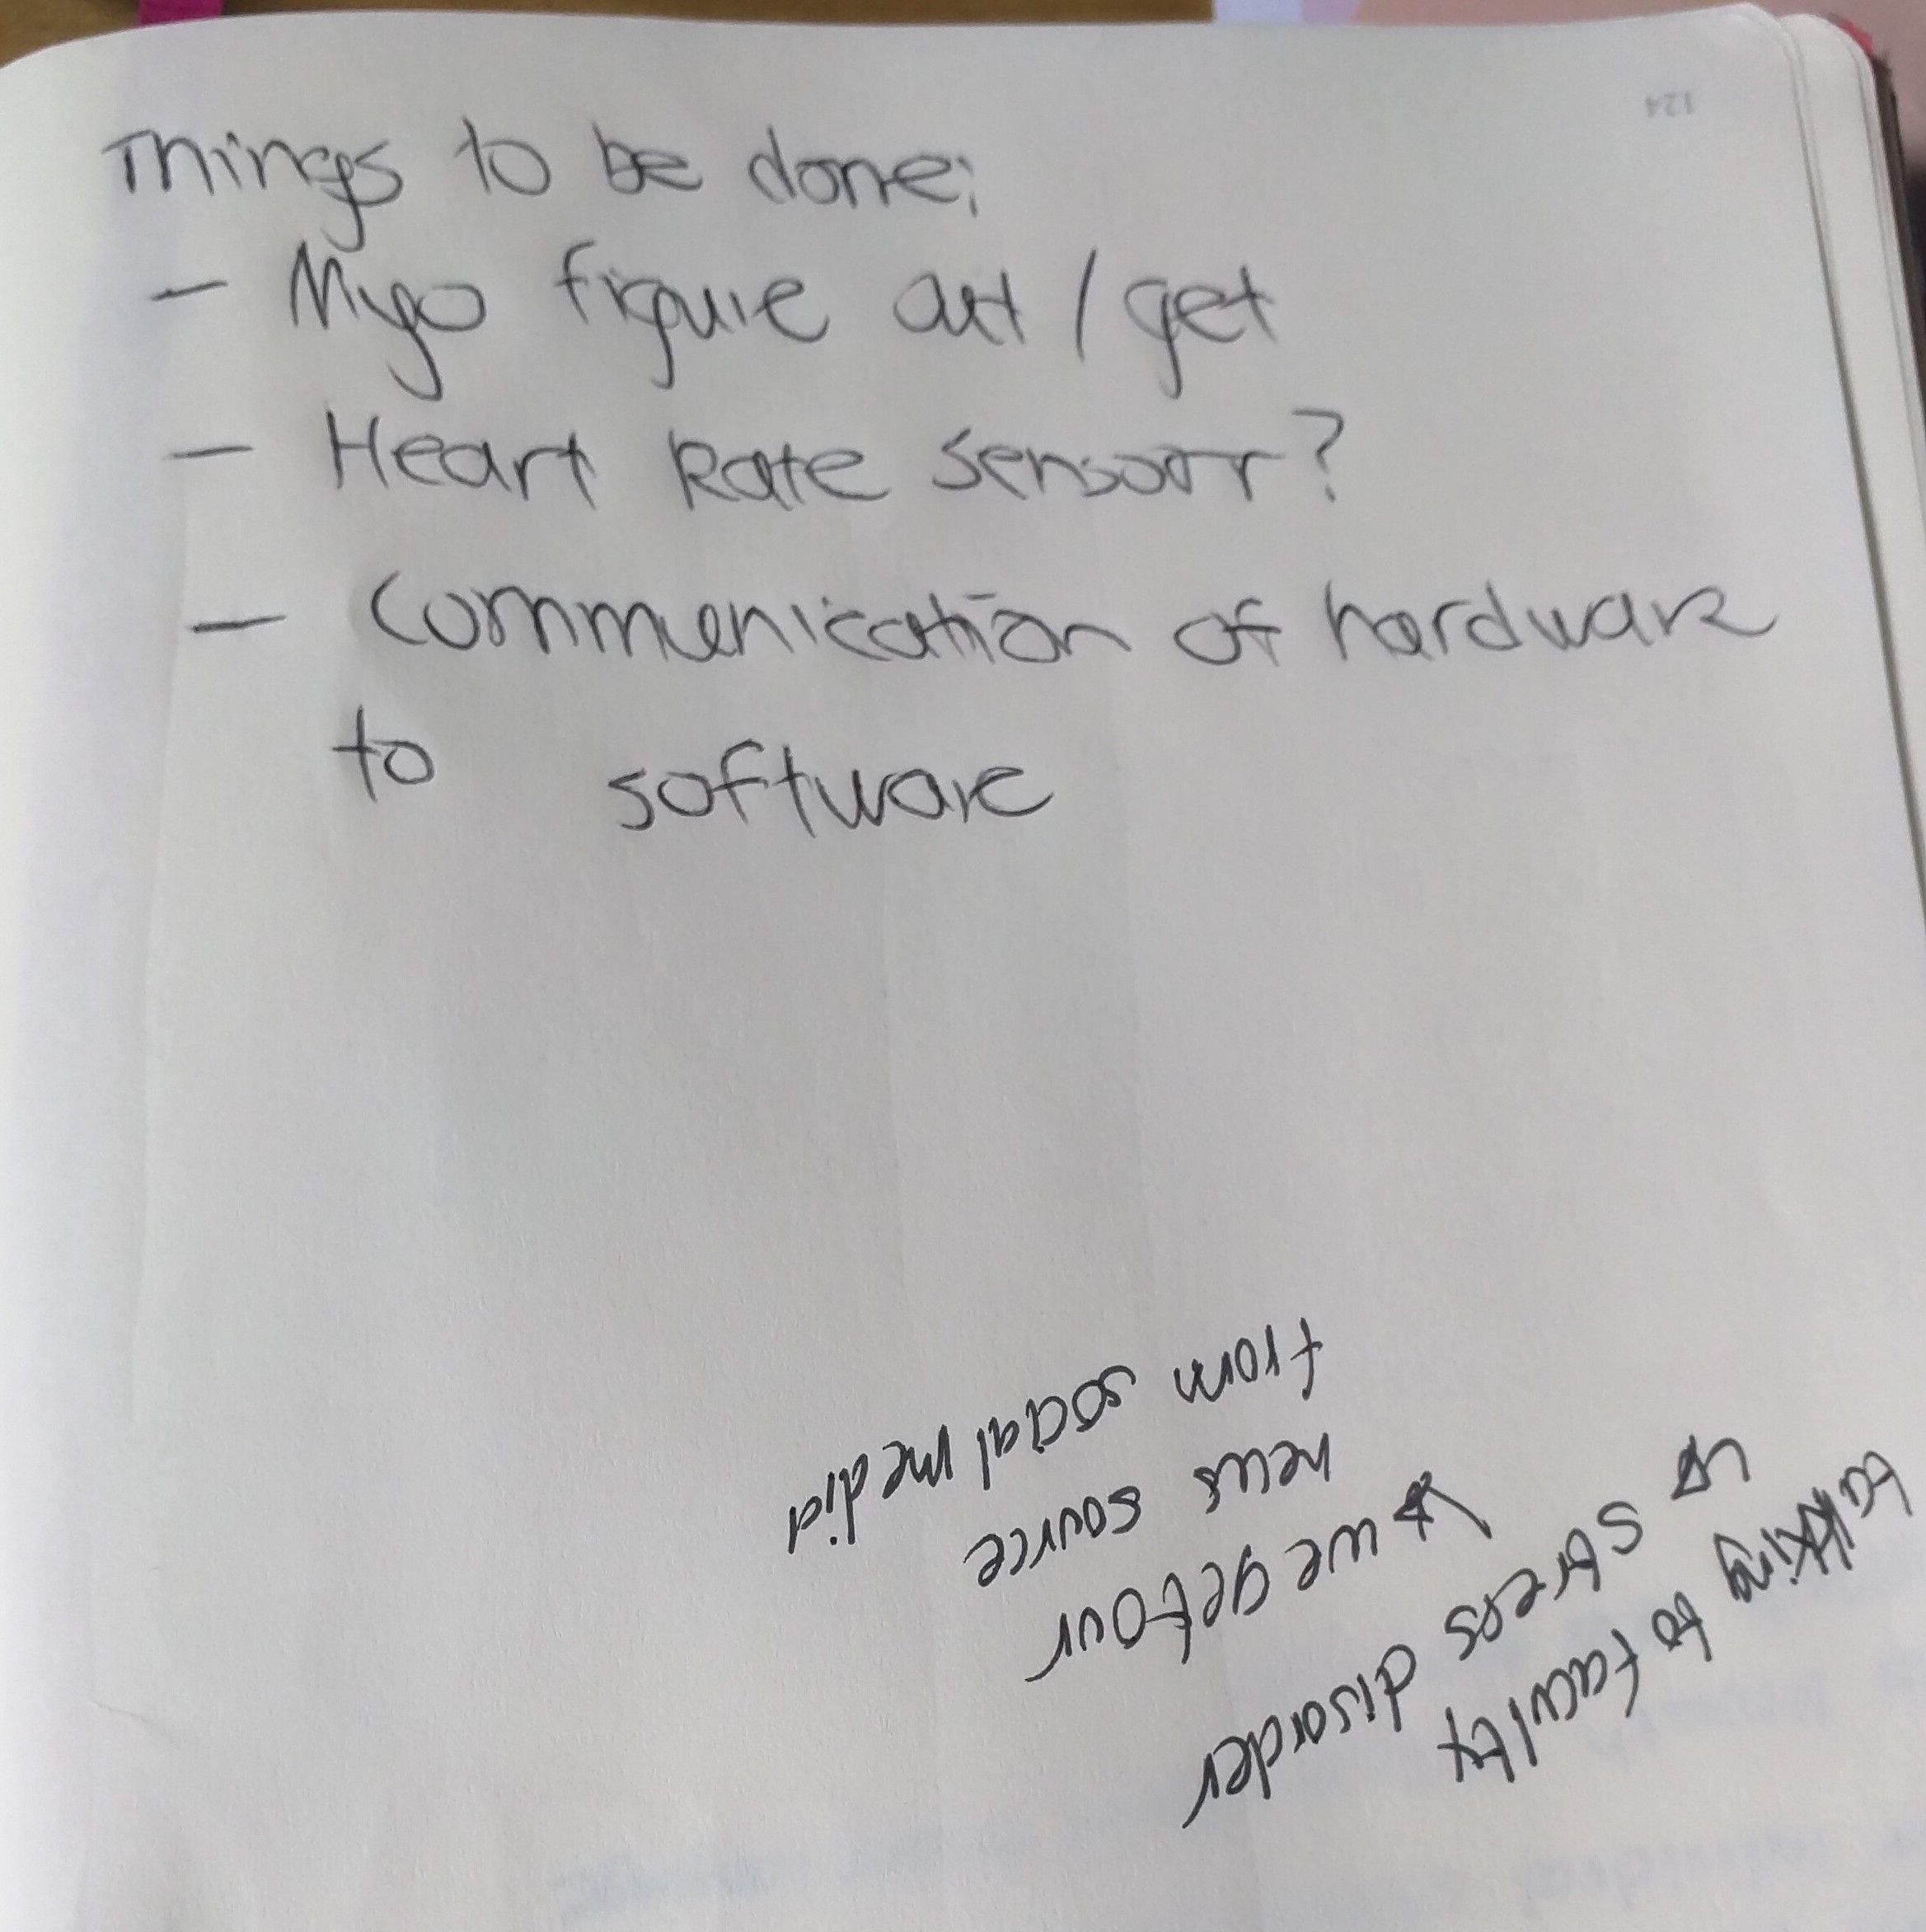 Things to be done:
- Myo figure out / get
- Heart Rate sensorr?
- Communication of hardware
to software
talking to facult
↳ stress disorder
↳ we get our
news source
from social media